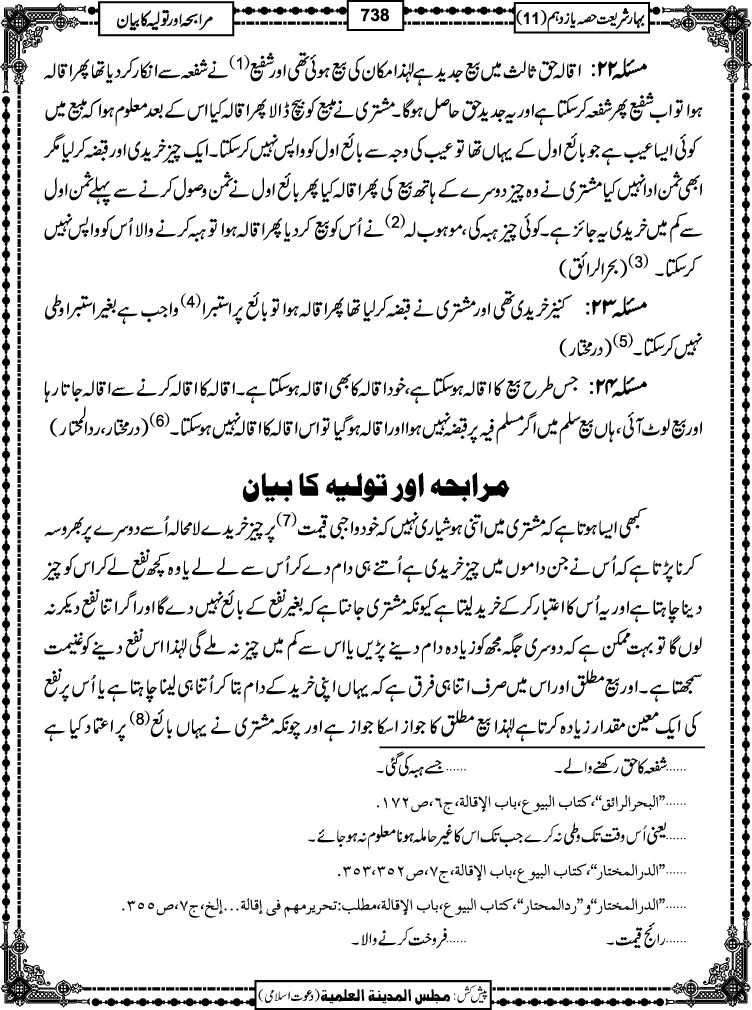 بہار شریعت حصہ یازدہم (11)
738
مرابحہ اور تولیہ کا بیان
مسئلہ ۲۲: اقالہ حق ثالث میں بیع جدید ہے لہٰذا مکان کی بیع ہوئی تھی اور شفیع (1) نے شفعہ سے انکار کر دیا تھا پھر اقالہ
ہوا تو اب شفیع پھر شفعہ کرسکتا ہے اور یہ جدید حق حاصل ہوگا۔ مشتری نے مبیع کو بیچ ڈالا پھر اقالہ کیا اس کے بعد معلوم ہوا کہ مبیع میں
کوئی ایسا عیب ہے جو بائع اول کے یہاں تھا تو عیب کی وجہ سے بائع اول کو واپس نہیں کرسکتا۔ ایک چیز خریدی اور قبضہ کر لیا مگر
ابھی ثمن ادا نہیں کیا مشتری نے وہ چیز دوسرے کے ہاتھ بیع کی پھر اقالہ کیا پھر بائع اول نے ثمن وصول کرنے سے پہلے ثمن اول
سے کم میں خریدی یہ جائز ہے۔ کوئی چیز ہبہ کی، موہوب لہ (2) نے اُس کو بیع کر دیا پھر اقالہ ہوا تو ہبہ کرنے والا اُس کو واپس نہیں
کرسکتا۔ (3) (بحرالرائق)
مسئلہ ۲۳: کنیز خریدی تھی اور مشتری نے قبضہ کر لیا تھا پھر اقالہ ہوا تو بائع پر استبرا (4) واجب ہے بغیر استبرا وطی
نہیں کرسکتا۔ (5) (درمختار)
مسئلہ ۲۴: جس طرح بیع کا اقالہ ہوسکتا ہے، خود اقالہ کا بھی اقالہ ہوسکتا ہے۔ اقالہ کا اقالہ کرنے سے اقالہ جاتا رہا
اور بیع لوٹ آئی، ہاں بیع سلم میں اگر مسلم فیہ پر قبضہ نہیں ہوا اور اقالہ ہوگیا تو اس اقالہ کا اقالہ نہیں ہوسکتا۔ (6) (درمختار، ردالمحتار)
مرابحہ اور تولیہ کا بیان
کبھی ایسا ہوتا ہے کہ مشتری میں اتنی ہوشیاری نہیں کہ خود واجبی قیمت (7) پر چیز خریدے لامحالہ اُسے دوسرے پر بھروسہ
کرنا پڑتا ہے کہ اُس نے جن داموں میں چیز خریدی ہے اُتنے ہی دام دے کر اُس سے لے لے یا وہ کچھ نفع لے کر اس کو چیز
دینا چاہتا ہے اور یہ اُس کا اعتبار کر کے خرید لیتا ہے کیونکہ مشتری جانتا ہے کہ بغیر نفع کے بائع نہیں دے گا اور اگر اتنا نفع دیکر نہ
لوں گا تو بہت ممکن ہے کہ دوسری جگہ مجھ کو زیادہ دام دینے پڑیں یا اس سے کم میں چیز نہ ملے گی لہٰذا اس نفع دینے کو غنیمت
سمجھتا ہے۔ اور بیع مطلق اور اس میں صرف اتنا ہی فرق ہے کہ یہاں اپنی خرید کے دام بتا کر اُتنا ہی لینا چاہتا ہے یا اُس پر نفع
کی ایک معین مقدار زیادہ کرتا ہے لہٰذا بیع مطلق کا جواز اسکا جواز ہے اور چونکہ مشتری نے یہاں بائع (8) پر اعتماد کیا ہے
......شفعہ کا حق رکھنے والے۔ ......جسے ہبہ کی گئی۔
......"البحرالرائق"، کتاب البیوع، باب الإقالة، ج۶، ص۱۷۲.
......یعنی اُس وقت تک وطی نہ کرے جب تک اس کا غیر حاملہ ہونا معلوم نہ ہو جائے۔
......"الدرالمختار"، کتاب البیوع، باب الإقالة، ج۷، ص۳۵۲،۳۵۳.
......"الدرالمختار" و "ردالمحتار"، کتاب البیوع، باب الإقالة، مطلب: تحریر مهم فی إقالة...إلخ، ج۷، ص۳۵۵.
......رائج قیمت۔ ......فروخت کرنے والا۔
پیش کش: مجلس المدينة العلمية (دعوت اسلامی)